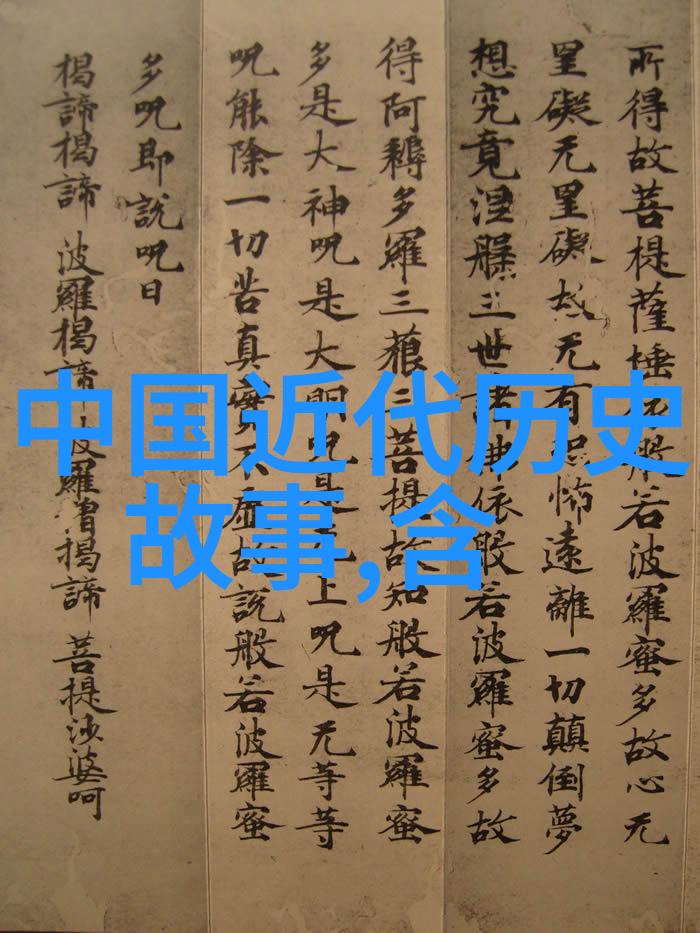 所得故菩提薩埵依般若波羅蜜多故心无
罣礙无罣礙故无有恐怖遠離一切顛倒夢
想究竟涅槃三世諸佛依般若波羅蜜多故
得阿耨多羅三藐三菩提故知般若波羅蜜
多是大神咒是大明咒是无上咒是无等等
咒能除一切苦真實不虛故說般若波羅蜜
多咒即說咒曰
揭諦揭諦 波羅揭諦 波羅僧揭諦 菩提沙婆呵
中国近代历史
故事,含